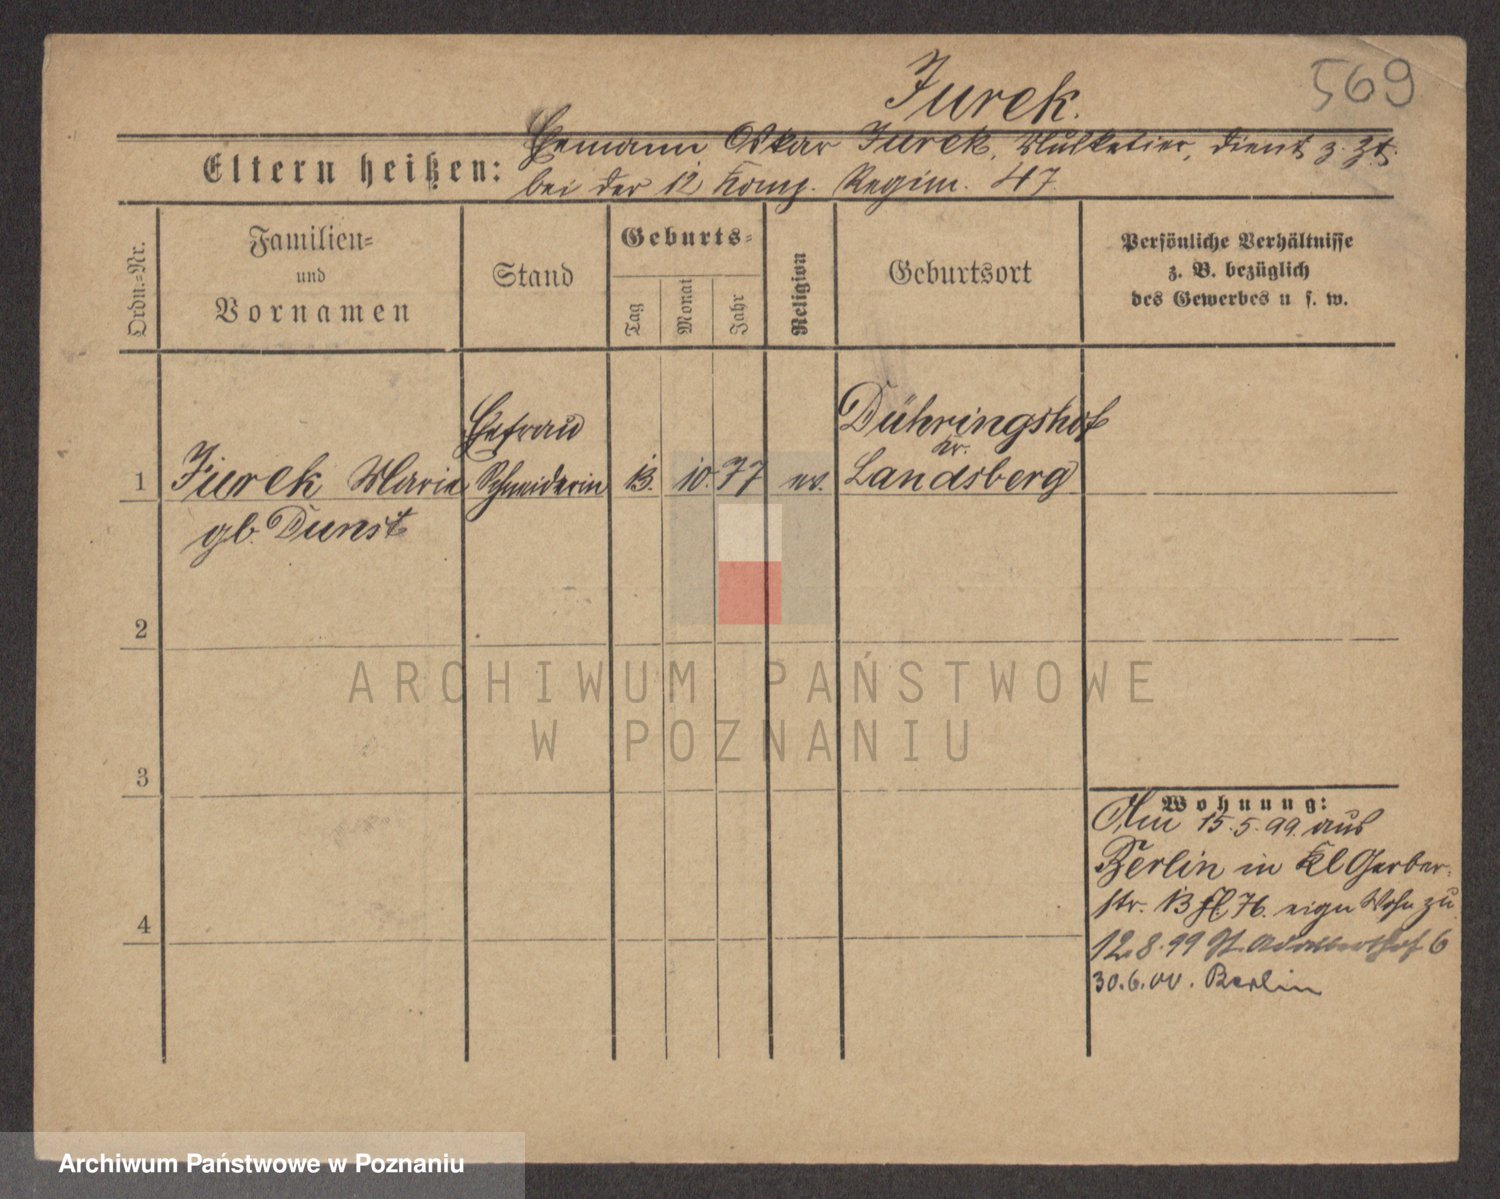 569
Jurek.
Ehemann Oskar Jurek, Musketier, dient z. Zt.
Eltern heißen:
bei der 12 Komp. Regim. 47
Ordn.-Nr.
Familien-
und
Vornamen
Stand
Geburts-
Tag
Monat
Jahr
Religion
Geburtsort
Persönliche Verhältnisse
z. B. bezüglich
des Gewerbes u s. w.
1
Jurek Marie
gb. Dunst
Ehefrau
Schneiderin
13.
10.
77
ev.
Dühringshof
Kr.
Landsberg
2
3
4
Wohnung:
Am 15.5.99. aus
Berlin in Kl Gerber-
str. 13 76. eigen Wohn zu
12.8.99 St. Adalberthof 6
30.6.00. Berlin
ARCHIWUM PAŃSTWOWE
W POZNANIU
Archiwum Państwowe w Poznaniu